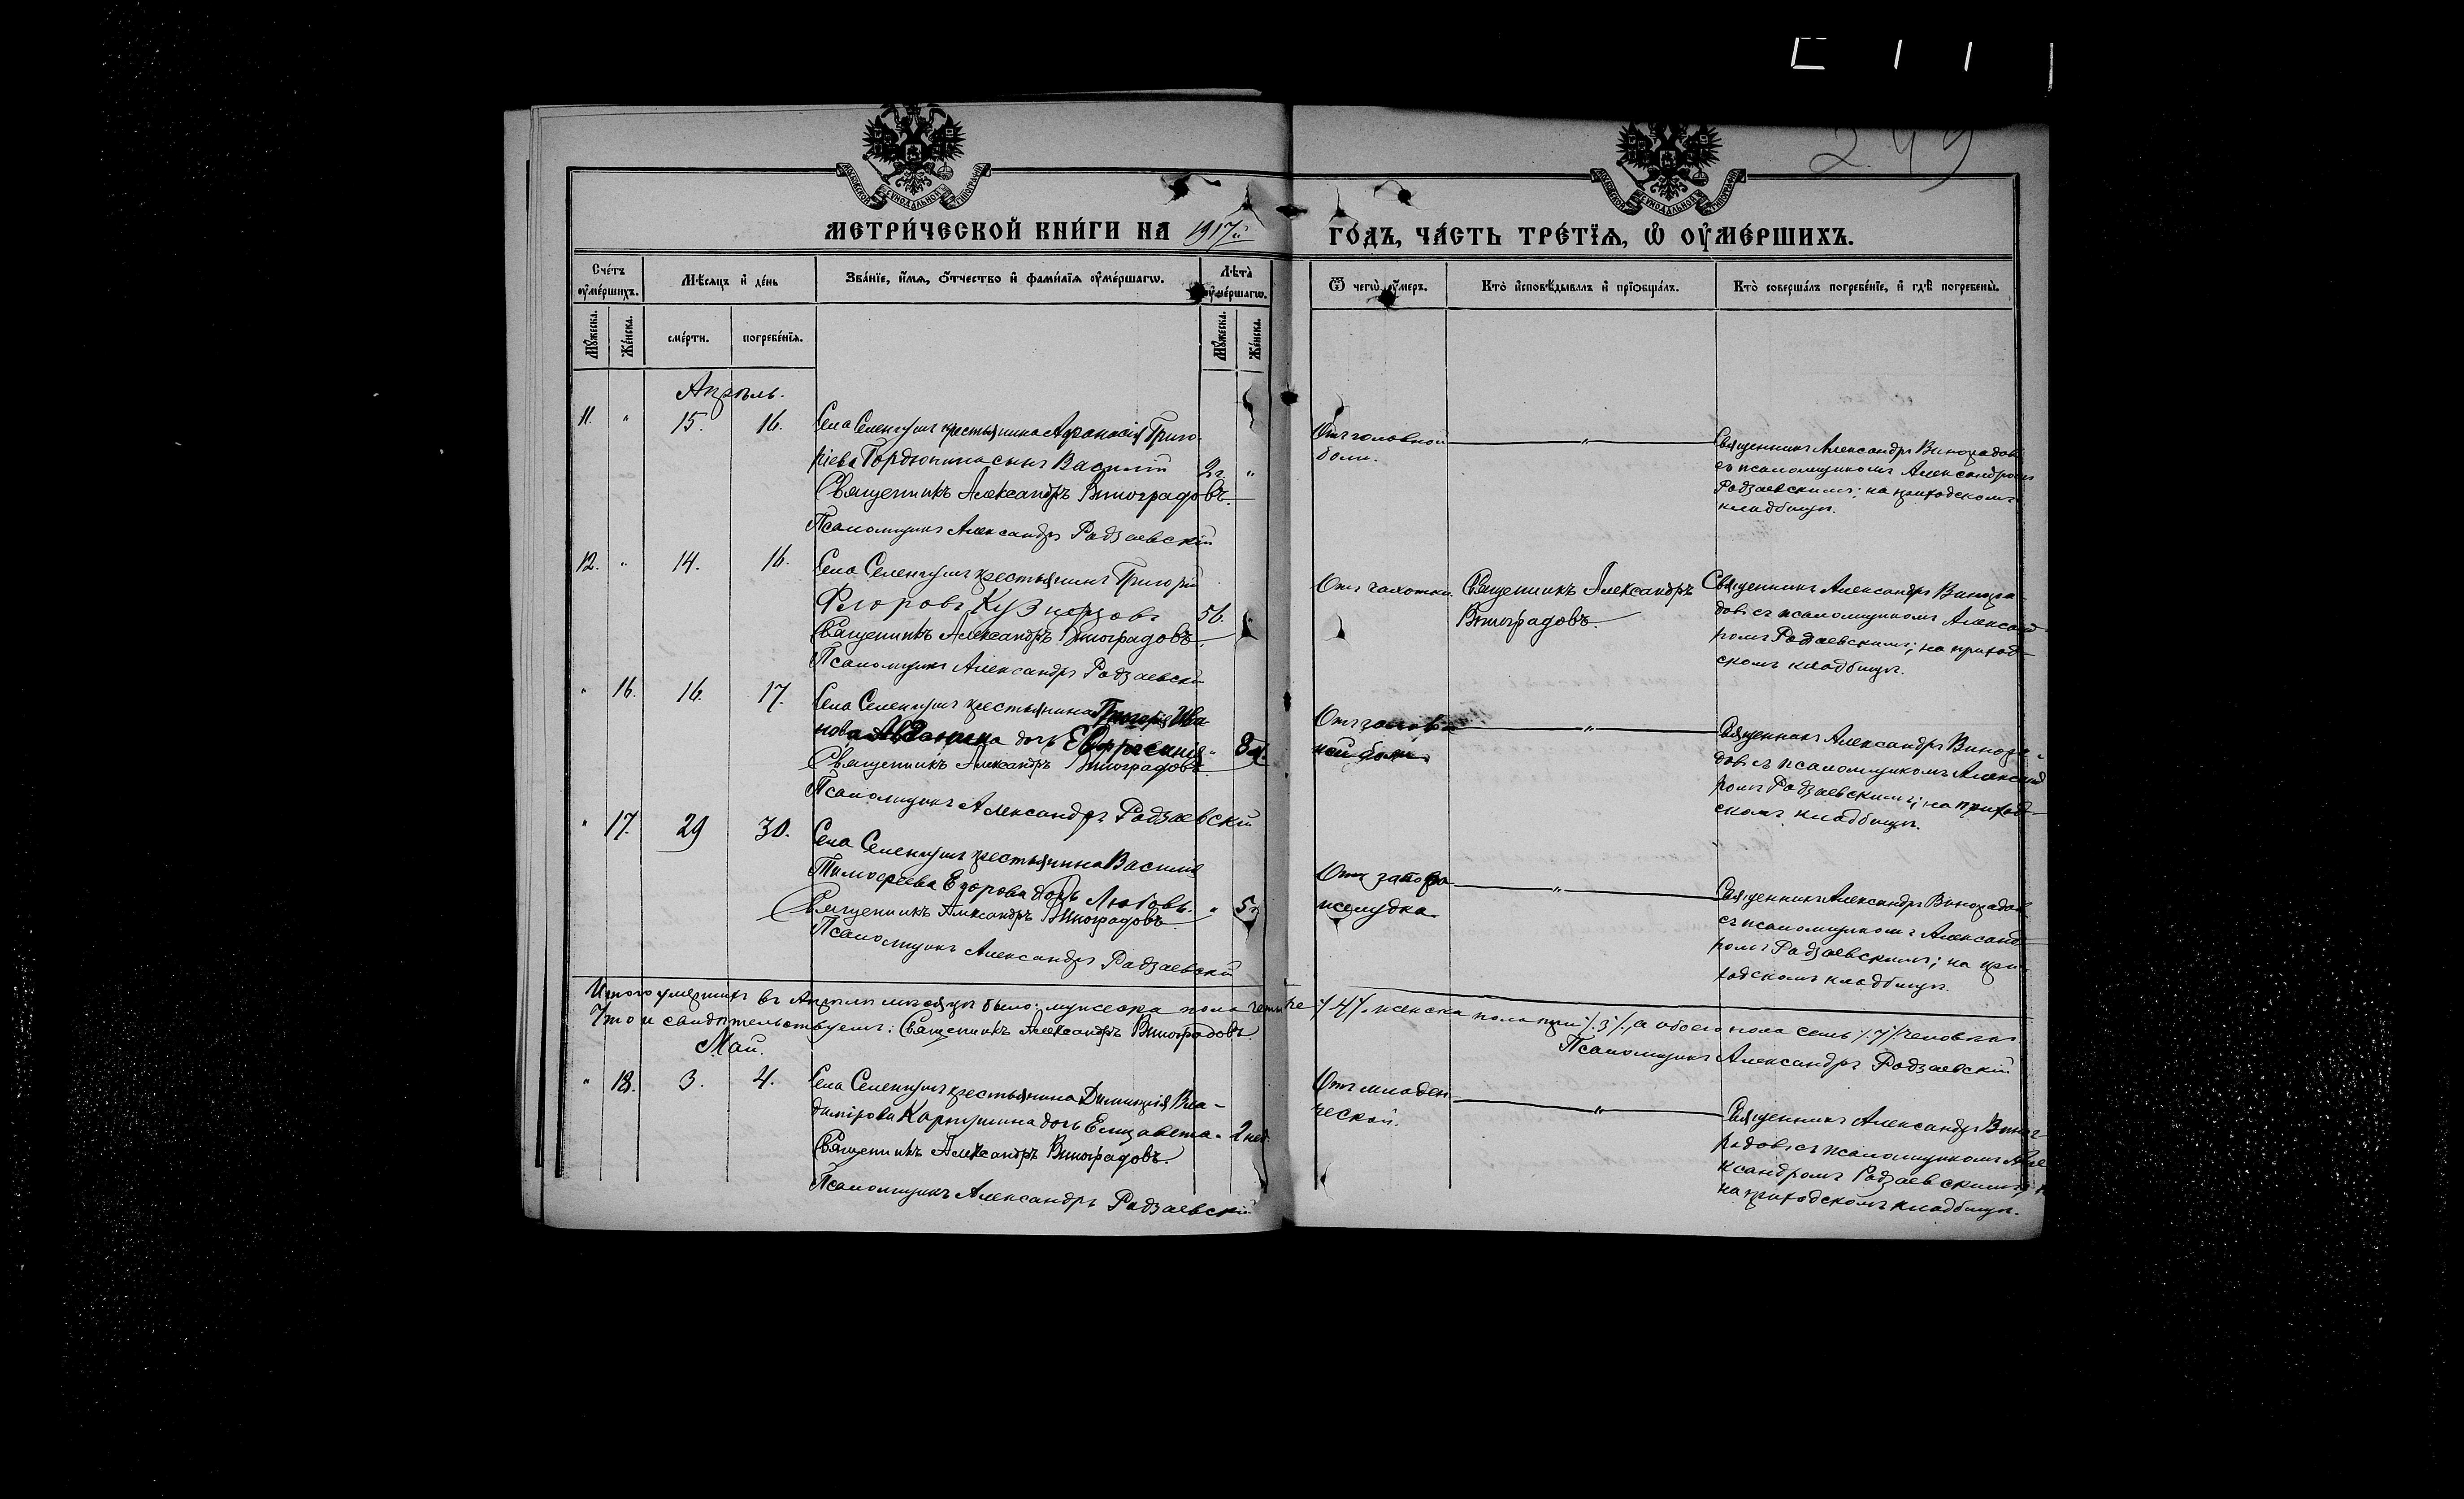 249
МОСКОВСКОЙ СѴНОДАЛЬНОЙ ТИПОГРАФІИ
МОСКОВСКОЙ СѴНОДАЛЬНОЙ ТИПОГРАФІИ
МЕТРИ́ЧЕСКОЙ КНИ́ГИ НА 1917й ГО́ДЪ, ЧА́СТЬ ТРЕ́ТЇѦ, Ѡ҆ ОУ҆МЕ́РШИХЪ.
Сче́тъ оу҆ме́ршихъ.
Мѣ́сяцъ и҆ де́нь
Зва́нїе, и҆́мѧ, о҆́тчество и҆ фами́лїѧ оу҆ме́ршагѡ.
Лѣ́та оу҆ме́ршагѡ.
Ѿ чегѡ̀ оу҆́меръ.
Кто̀ и҆сповѣ́дывалъ и҆ прїѡбща́лъ.
Кто̀ соверша́лъ погребе́нїе, и҆ гдѣ̀ погребены̀.
Мꙋ́жеска.
Же́нска.
сме́рти.
погребе́нїѧ.
Мꙋ́жеска.
Же́нска.
Апрѣль.
11. " 15. 16. Села Селенгушъ крестьянина Афанасія Григо-
ріева Гордюнина сынъ Василій 2г. "
Священникъ Александръ Виноградовъ.
Псаломщикъ Александръ Радзаевскій
Отъ головной
боли.
"
Священникъ Александръ Виноградовъ
съ псаломщикомъ Александромъ
Радзаевскимъ; на приходскомъ
кладбищѣ.
12. " 14. 16. Села Селенгушъ крестьянинъ Григорій
Ѳедоровъ Кузнецовъ 56. "
Священникъ Александръ Виноградовъ.
Псаломщикъ Александръ Радзаевскій
Отъ чахотки.
Священникъ Александръ
Виноградовъ.
Священникъ Александръ Виногра-
довъ съ псаломщикомъ Александ-
ромъ Радзаевскимъ; на приход-
скомъ кладбищѣ.
" 16. 16. 17. Села Селенгушъ крестьянина Григорія Ива-
нова дочь Евфросинія " 8
Священникъ Александръ Виноградовъ.
Псаломщикъ Александръ Радзаевскій
Отъ голов-
ной боли.
"
Священникъ Александръ Виногра-
довъ съ псаломщикомъ Александ-
ромъ Радзаевскимъ; на приход-
скомъ кладбищѣ.
" 17. 29 30. Села Селенгушъ крестьянина Василія
Тимоѳеева Егорова дочь Любовь. " 5
Священникъ Александръ Виноградовъ.
Псаломщикъ Александръ Радзаевскій
Отъ запора
желудка.
"
Священникъ Александръ Виноградовъ
съ псаломщикомъ Александ-
ромъ Радзаевскимъ; на при-
ходскомъ кладбищѣ.
Итого умершихъ въ Апрѣлѣ мѣсяцѣ было: мужеска пола четыре /4/, женска пола три /3/, а обоего пола семь /7/ человѣкъ
Что и свидѣтельствуемъ: Священникъ Александръ Виноградовъ.
Псаломщикъ Александръ Радзаевскій
Май.
" 18. 3. 4. Села Селенгушъ крестьянина Димитрія Вла-
димірова Карпушина дочь Елизавета. " 2 нед.
Священникъ Александръ Виноградовъ.
Псаломщикъ Александръ Радзаевскій
Отъ младен-
ческой.
"
Священникъ Александръ Виног-
радовъ съ псаломщикомъ Але-
ксандромъ Радзаевскимъ;
на приходскомъ кладбищѣ.